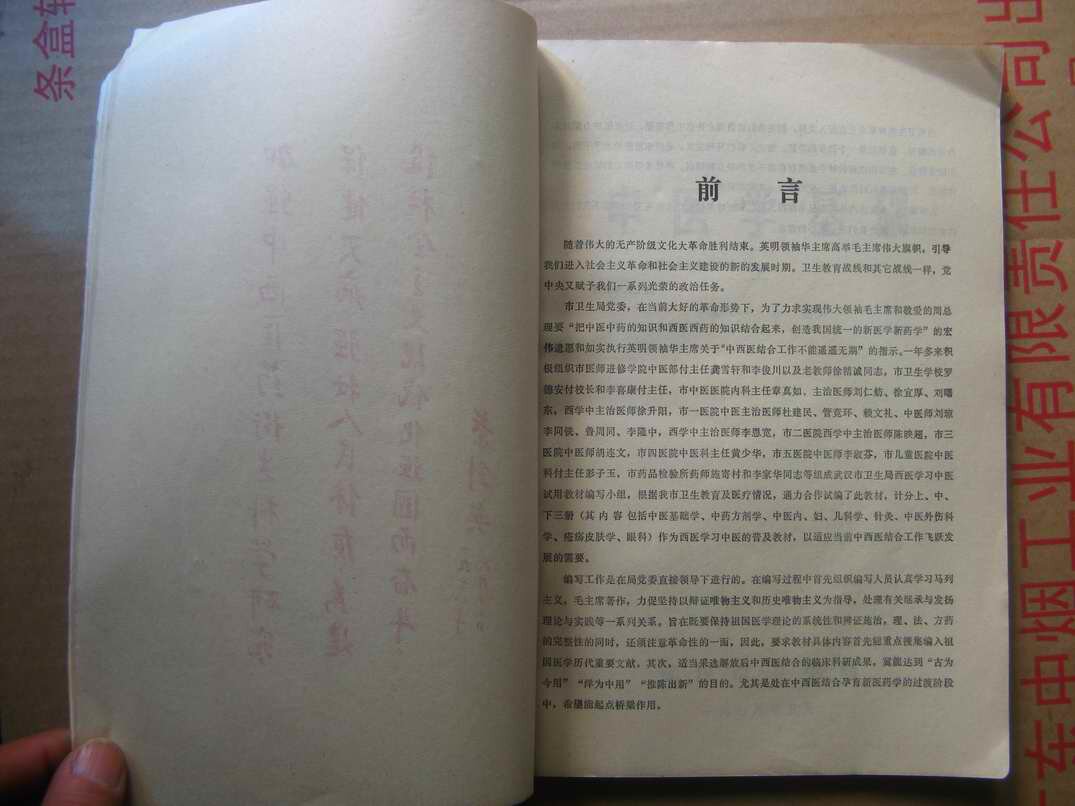 前言
随着伟大的无产阶级文化大革命胜利结束。英明领袖华主席高举毛主席伟大旗帜，引导
我们进入社会主义革命和社会主义建设的新的发展时期。卫生教育战线和其它战线一样，党
中央又赋予我们一系列光荣的政治任务。
市卫生局党委，在当前大好的革命形势下，为了力求实现伟大领袖毛主席和敬爱的周总
理要“把中医中药的知识和西医西药的知识结合起来，创造我国统一的新医学新药学”的宏
伟遗愿和如实执行英明领袖华主席关于“中西医结合工作不能遥遥无期”的指示。一年多来积
极组织市医师进修学院中医部付主任龚雪轩和李俊川以及老教师徐精诚同志，市卫生学校罗
德安付校长和李喜康付主任，市中医医院内科主任章真如、主治医师刘仁舫、徐宜厚、刘曙
东，西学中主治医师徐升阳，市一医院中医主治医师杜建民、管竞环、赖文礼、中医师刘琼
李同侠、鲁周同、李隆中，西学中主治医师李恩宽，市二医院西学中主治医师陈映超，市三
医院中医师胡连文，市四医院中医科主任黄少华，市五医院中医师李淑芬，市儿童医院中医
科付主任彭子玉，市药品检验所药师施寄村和李家华同志等组成武汉市卫生局西医学习中医
试用教材编写小组，根据我市卫生教育及医疗情况，通力合作试编了此教材，计分上、中、
下三册（其内容包括中医基础学、中药方剂学、中医内、妇、儿科学、针灸、中医外伤科
学、疮疡皮肤学、眼科）作为西医学习中医的普及教材，以适应当前中西医结合工作飞跃发
展的需要。
编写工作是在局党委直接领导下进行的。在编写过程中首先组织编写人员认真学习马列
主义，毛主席著作，力促坚持以辩证唯物主义和历史唯物主义为指导，处理有关继承与发扬
理论与实践等一系列关系，旨在既要保持祖国医学理论的系统性和辨证施治，理、法、方药
的完整性的同时，还须注意革命性的一面，因此，要求教材具体内容首先髄重点搜集编入祖
国医学历代重要文献。其次，适当采选解放后中西医结合的临床科研成果，冀能达到“古为
今用”“洋为中用”“推陈出新”的目的。尤其是处在中西医结合孕育新医药学的过渡阶段
中，希望能起点桥梁作用。
条盒
东中烟工业有限责任公司出